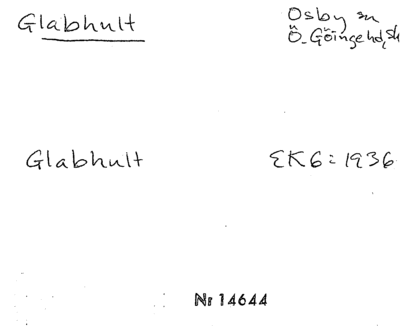 Glabhult
Osby sn
Ö. Göinge hd, Sk
Glabhult
EK6:1936
Nr 14644